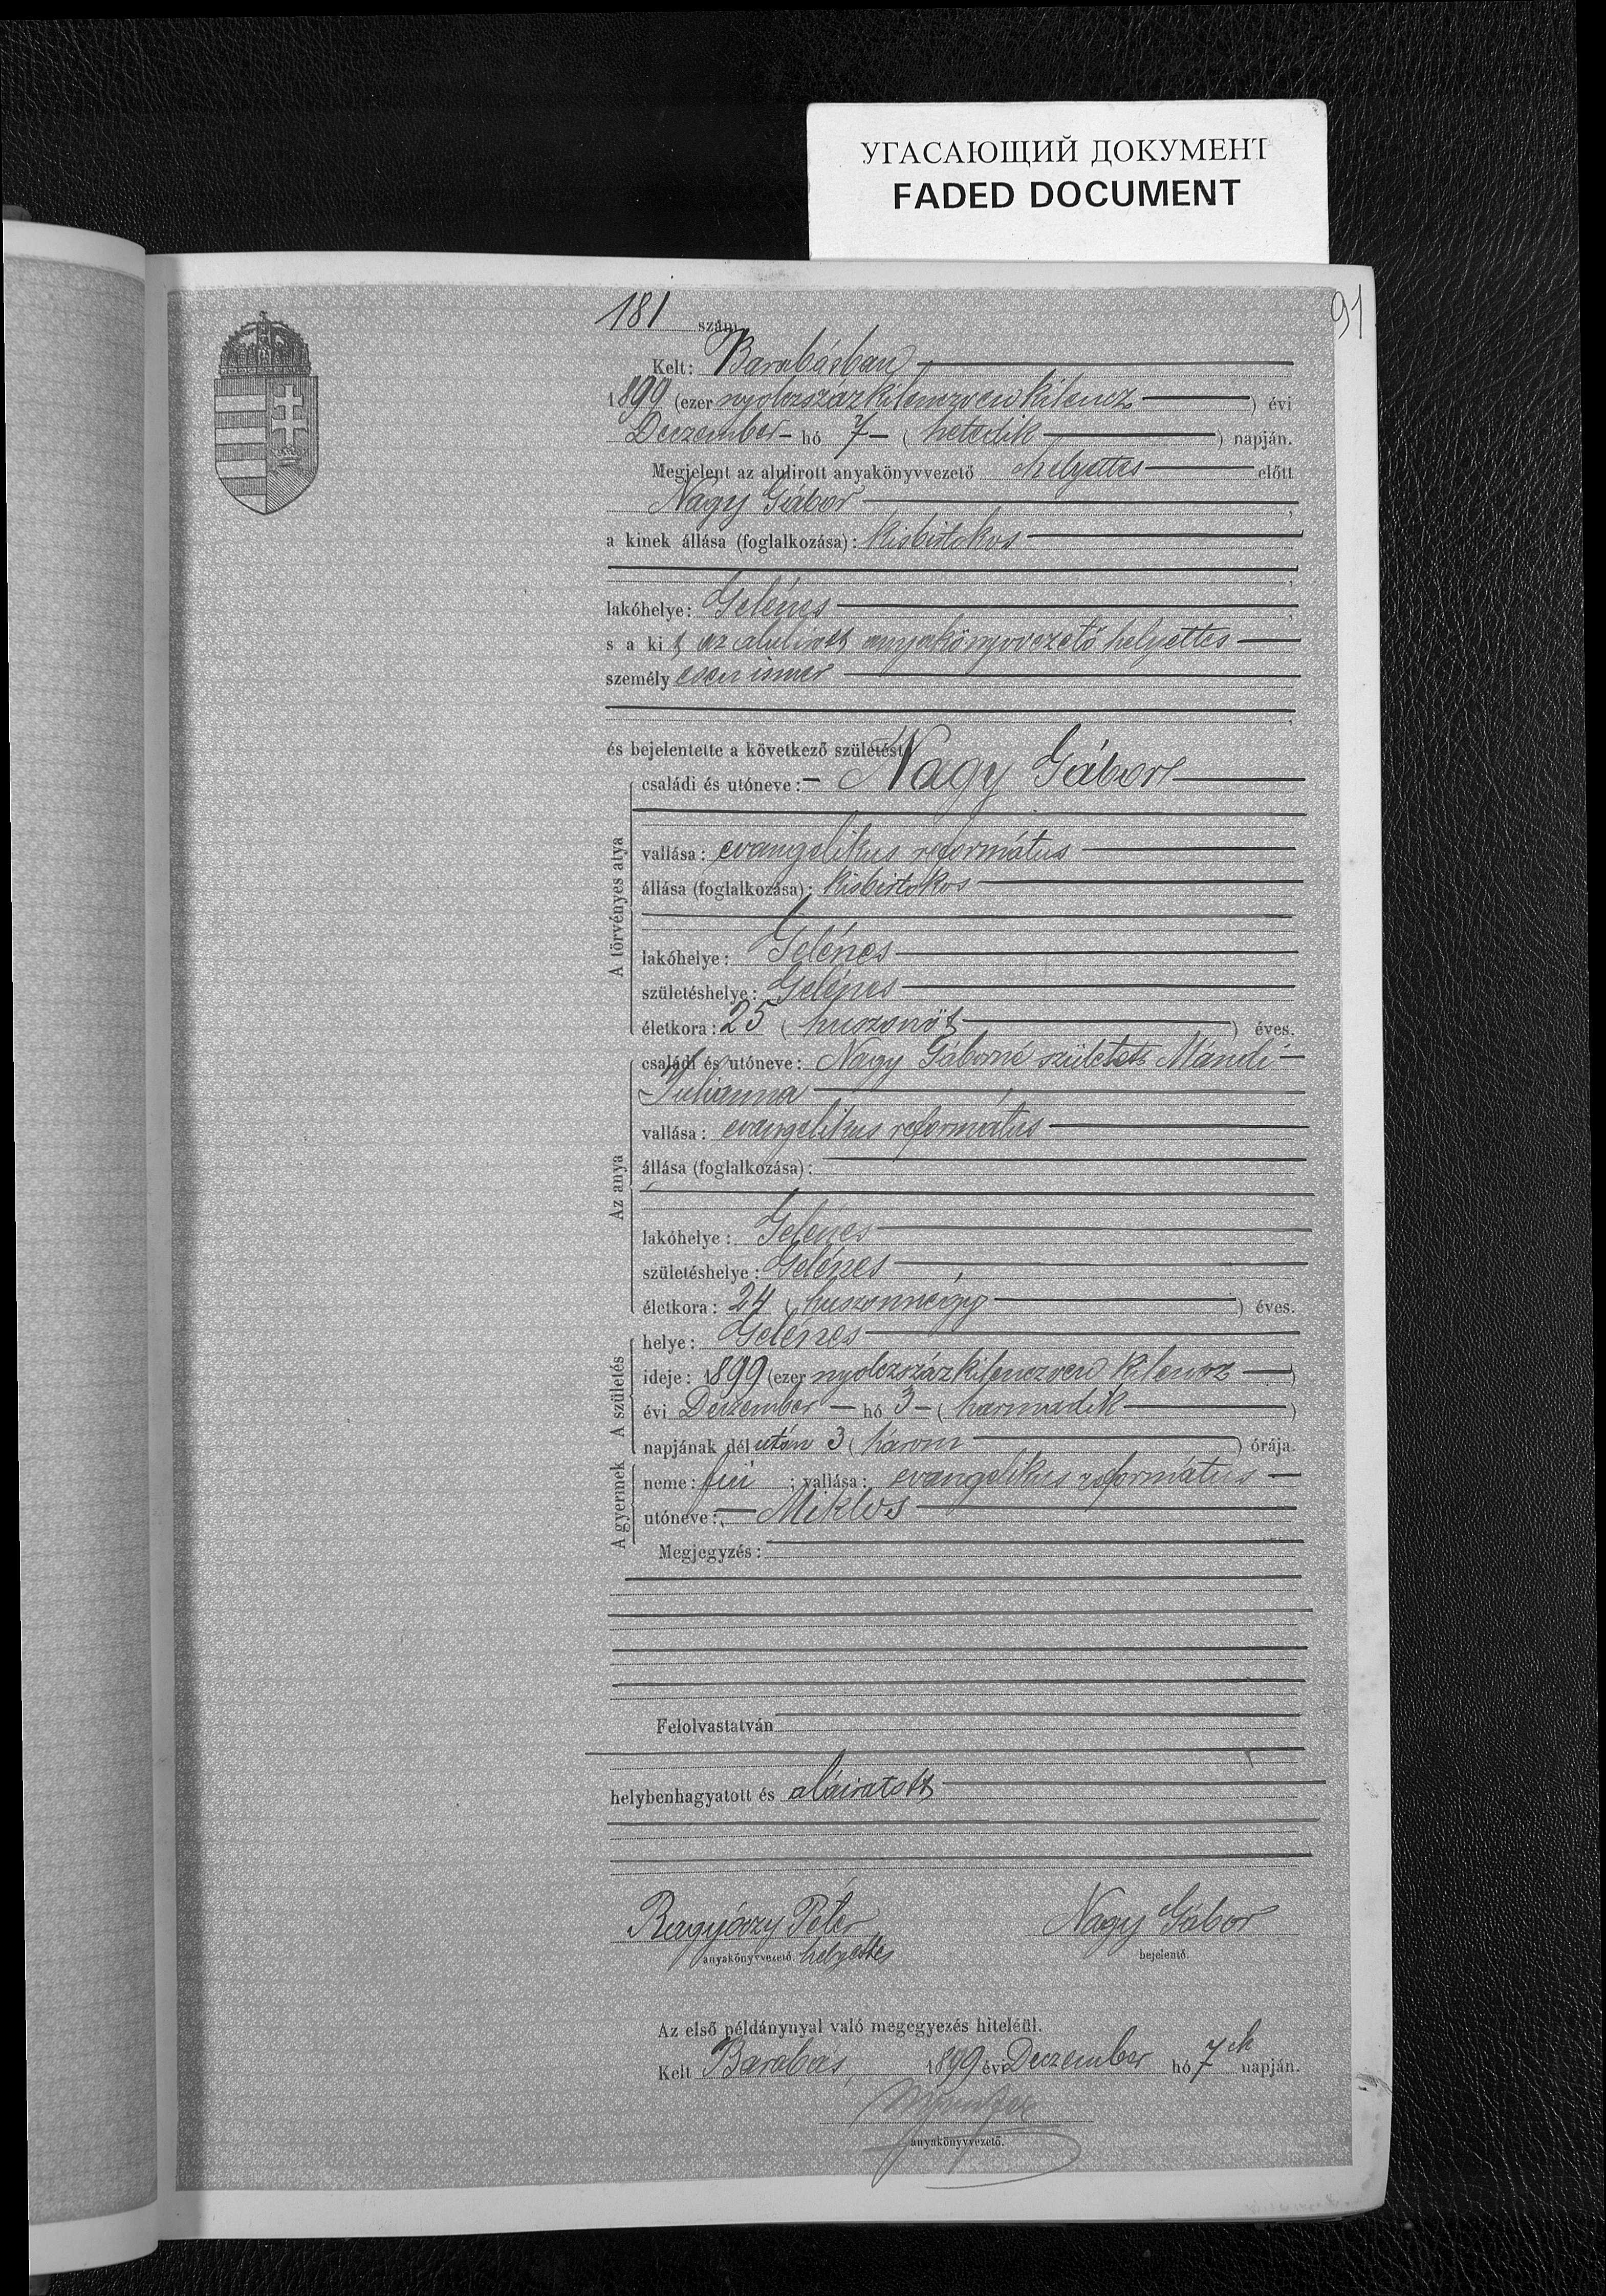 УГАСАЮЩИЙ ДОКУМЕНТ
FADED DOCUMENT
91
181 szám
Kelt: Barabásban
1899 (ezer nyolczszázkilenczvenkilencz) évi
Deczember hó 7 (hetedik) napján.
Megjelent az alulirott anyakönyvvezető helyettes előtt
Nagy Gábor
a kinek állása (foglalkozása): kisbirtokos
lakóhelye: Gelénes
s a kit az alulirott anyakönyvvezető helyettes
személyesen ismer
és bejelentette a következő születést:
A törvényes atya
családi és utóneve: Nagy Gábor
vallása: evangelikus református
állása (foglalkozása): kisbirtokos
lakóhelye: Gelénes
születéshelye: Gelénes
életkora: 25 (huszonöt) éves.
Az anya
családi és utóneve: Nagy Gáborné született Mándi
Julianna
vallása: evangelikus református
állása (foglalkozása):
lakóhelye: Gelénes
születéshelye: Gelénes
életkora: 24 (huszonnégy) éves.
A születés
helye: Gelénes
ideje: 1899 (ezer nyolczszázkilenczven kilencz)
évi Deczember hó 3 (harmadik)
napjának délután 3 (három) órája.
A gyermek
neme: fiú; vallása: evangelikus református
utóneve: Miklós
Megjegyzés:
Felolvastatván
helybenhagyatott és aláiratott
Péter Nagy Gábor
anyakönyvvezető helyettes bejelentő.
Az első példánynyal való megegyezés hiteléül.
Kelt Barabás, 1899 évi Deczember hó 7ik napján.
anyakönyvvezető.